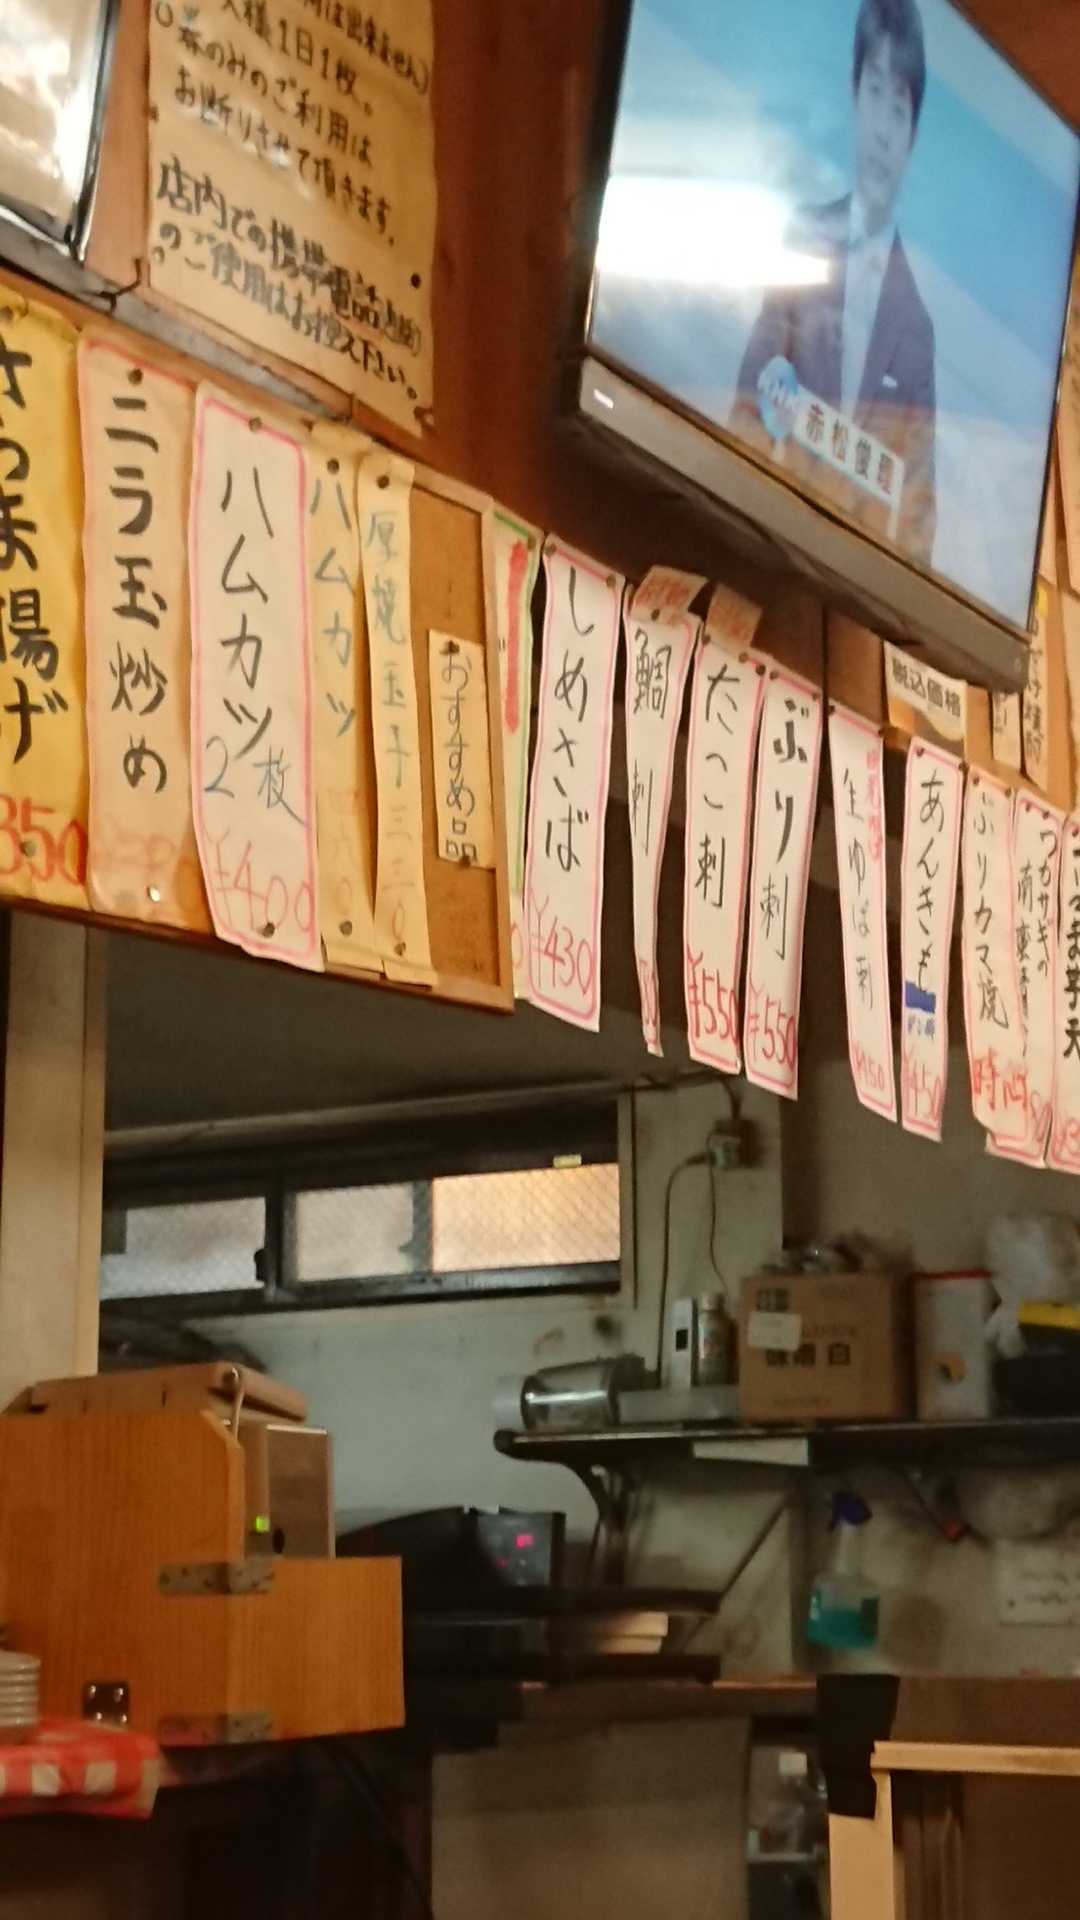 人様1日1枚。
券のみのご利用は
お断りさせて頂きます。
店内での携帯電話
のご使用はお控え下さい。
NHK
赤松俊理
さつま揚げ
350
ニラ玉炒め
ハムカツ
2枚
¥400
ハムカツ
厚焼玉子
三三〇
おすすめ品
しめさば
¥430
鯛刺
たこ刺
¥550
ぶり刺
¥550
税込価格
生ゆば刺
¥450
あんきも
¥450
ぶりカマ焼
時価
ワカサギの
南蛮漬け